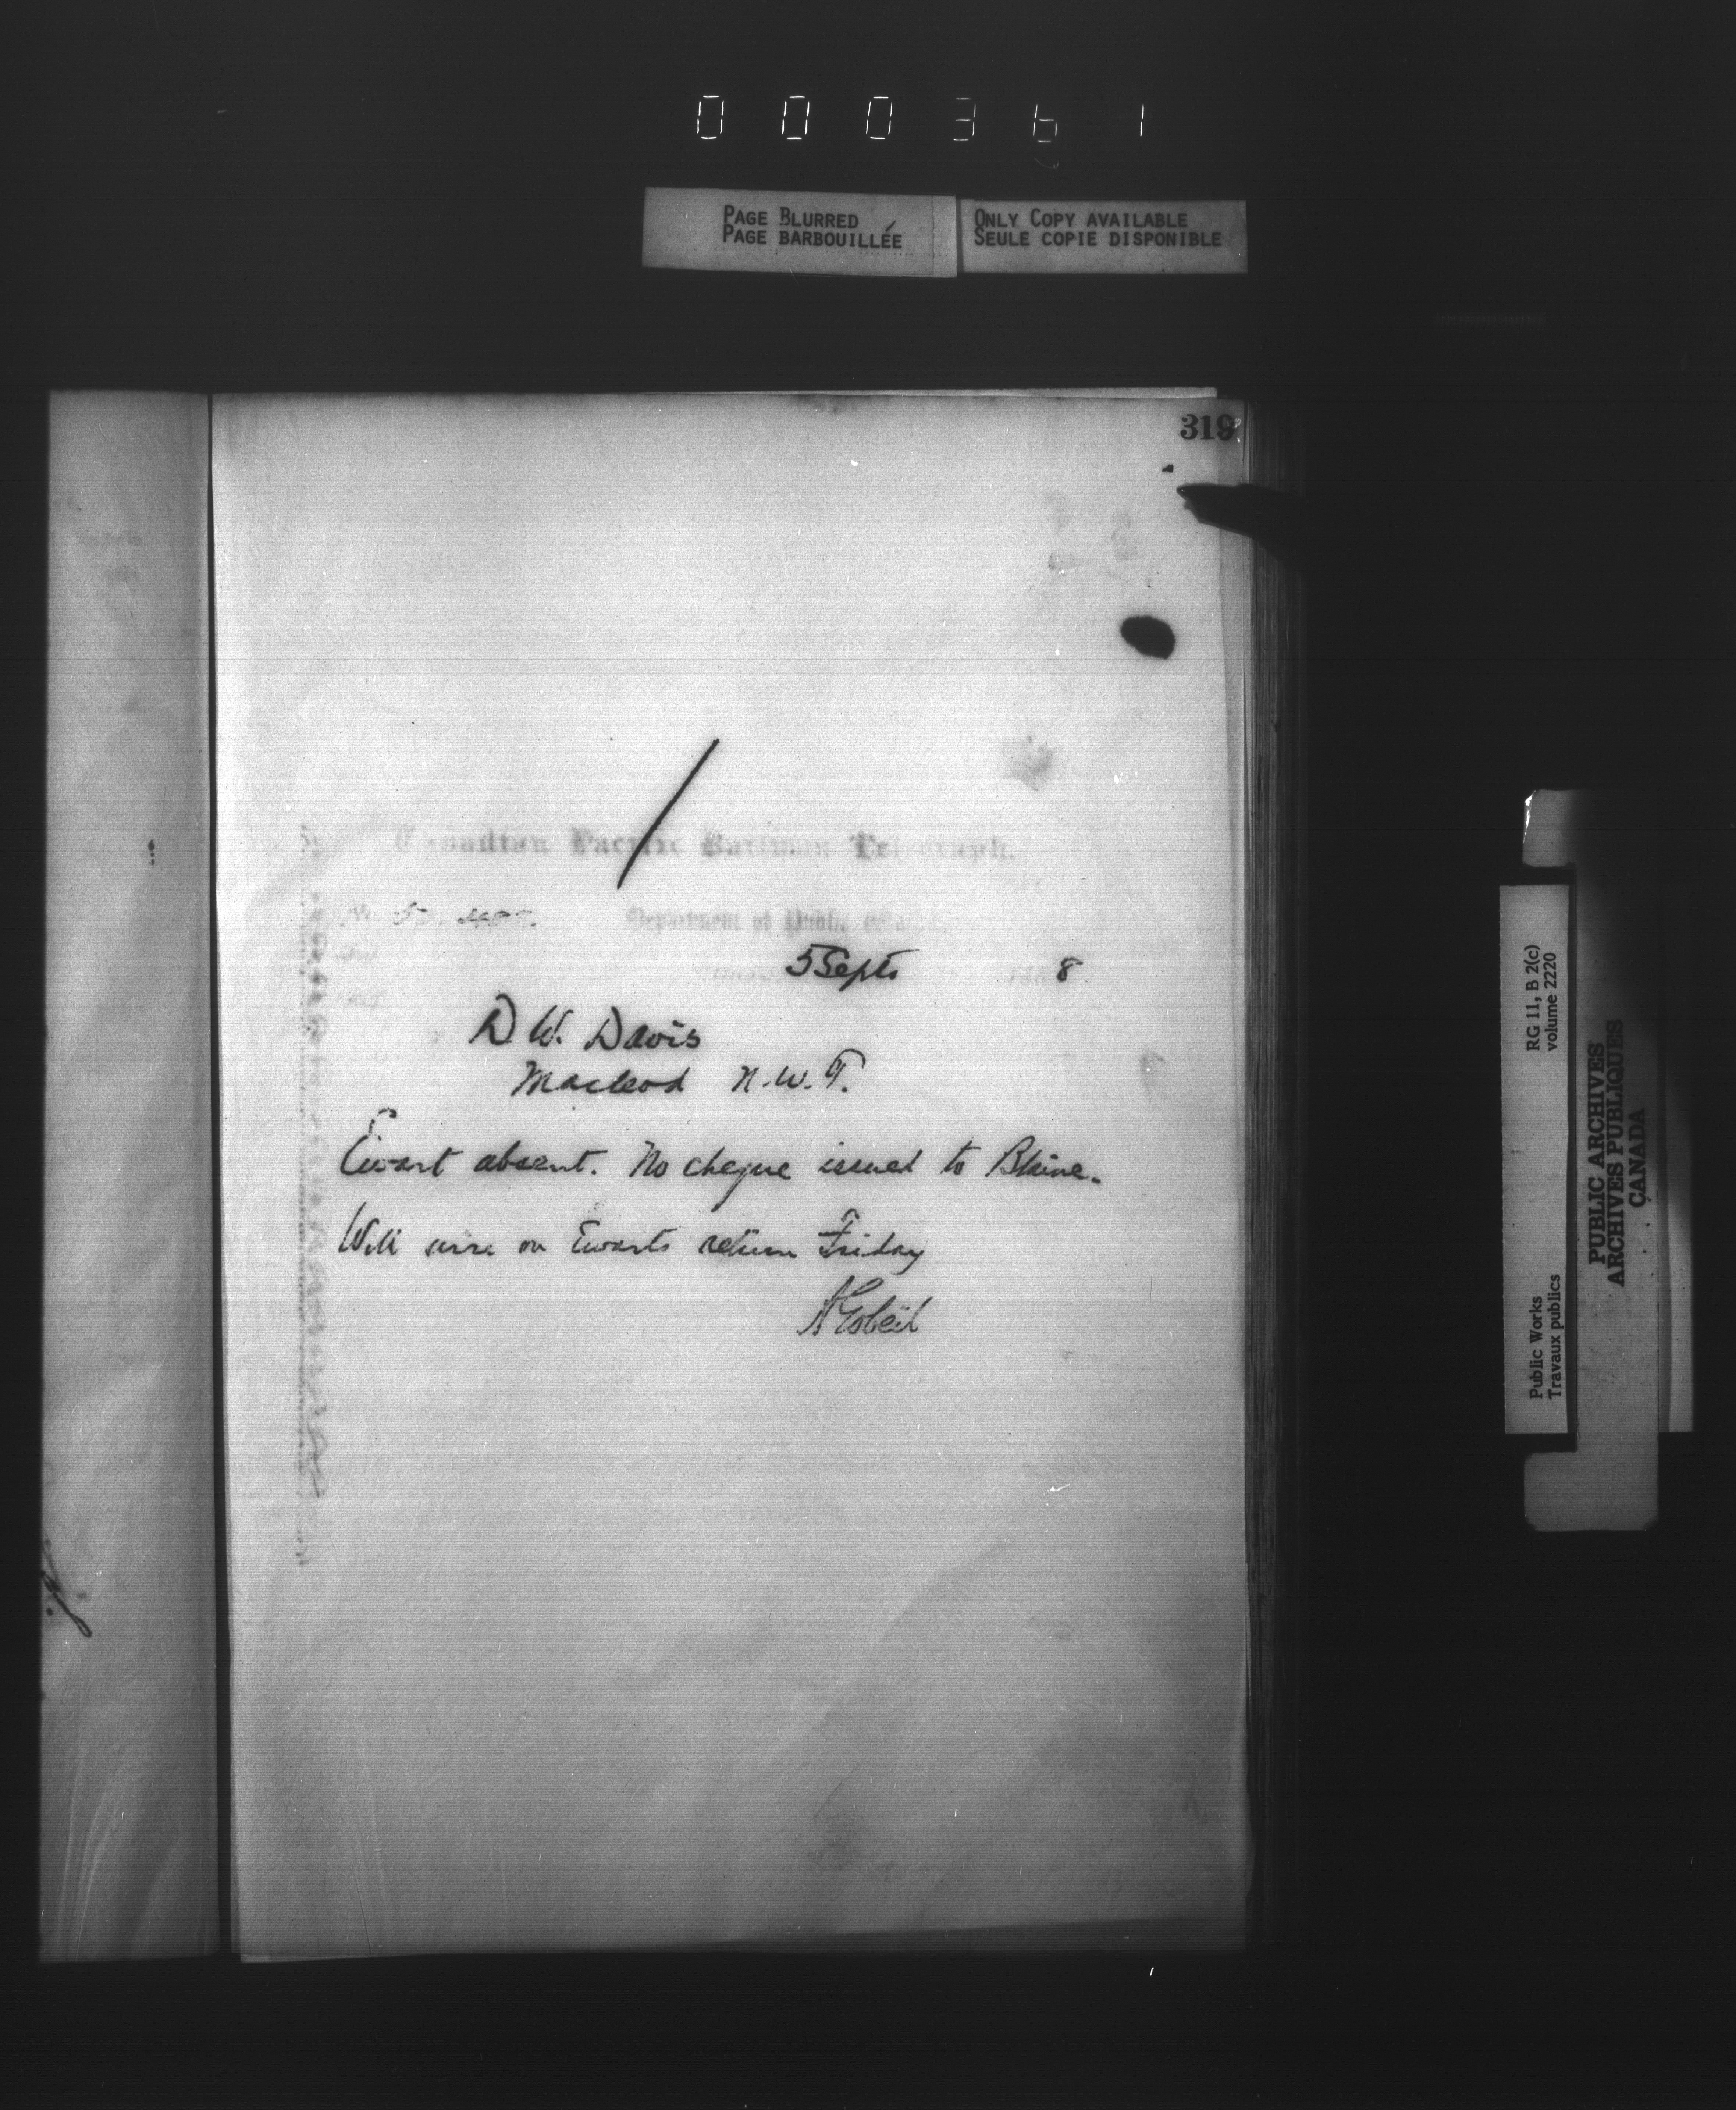 000361
PAGE BLURRED
PAGE BARBOUILLÉE
ONLY COPY AVAILABLE
SEULE COPIE DISPONIBLE
319
Canadian Pacific Railway Telegraph.
Department of Public
5 Septr 8
D W. Davis
Macleod N.W.T.
Ewart absent. No cheque issued to Blaine.
Will wire on Ewarts return Friday
A Gobeil
RG 11, B 2(c)
volume 2220
Public Works
Travaux publics
PUBLIC ARCHIVES
ARCHIVES PUBLIQUES
CANADA